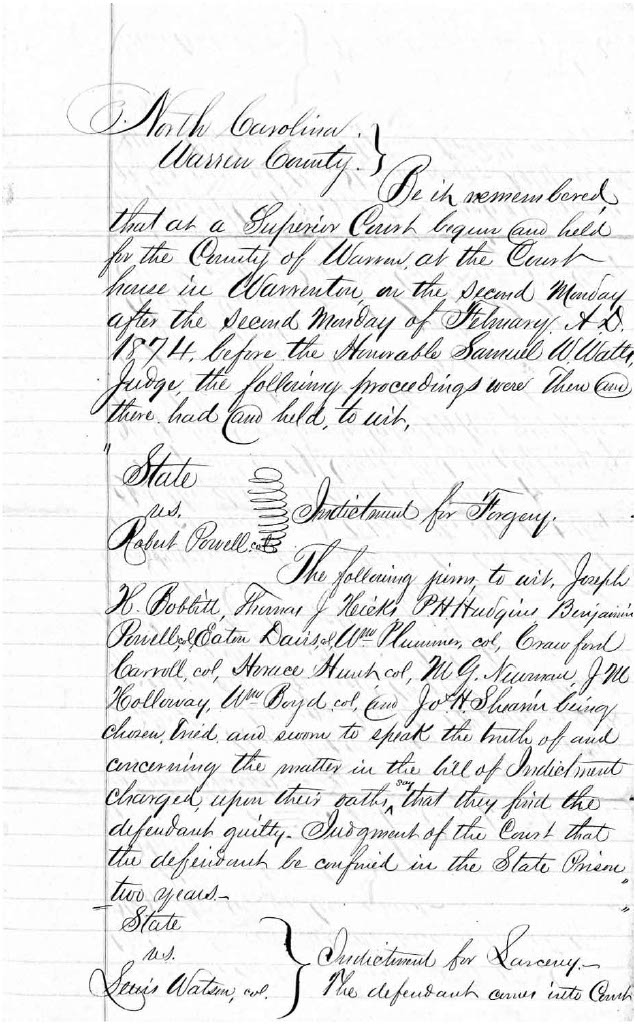 North Carolina.
Warren County. }
Be it remembered,
that at a Superior Court begun and held
for the County of Warren, at the Court
house in Warrenton, on the second Monday
after the second Monday of February, A.D.
1874, before the Honorable Samuel W. Watts,
Judge, the following proceedings were then and
there had and held, to wit,
"
State
vs.
Robert Powell, col.
Indictment for Forgery.
The following jurors to wit, Joseph
H. Bobbitt, Thomas J Hicks P.H. Hudgins Benjamin
Powell, col, Eaton Davis, col, Wm Plummer, col, Crawford
Carroll, col, Horace Hunt col, M G. Newman, J M
Holloway, Wm Boyd col, and Jo H. Shearin being
chosen, tried, and sworn to speak the truth of and
concerning the matter in the bill of Indictment
charged, upon their oaths, say that they find the
defendant guilty - Judgment of the Court that
the defendant be confined in the State Prison
two years - "
State
vs.
Lewis Watson, col. }
Indictment for Larceny. -
The defendant comes into Court